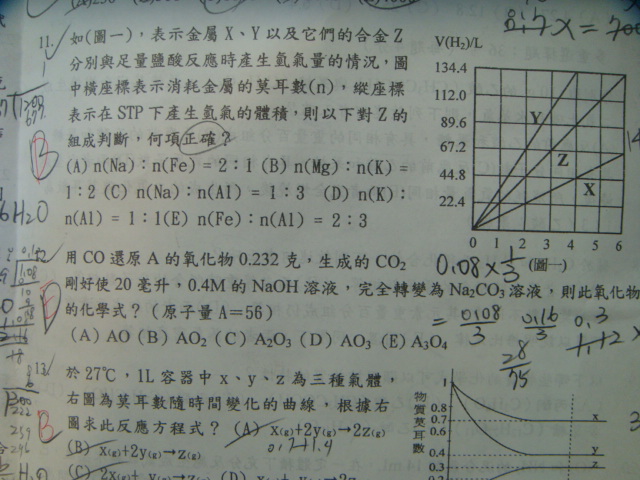 11. 如(圖一)，表示金屬 X、Y 以及它們的合金 Z
分別與足量鹽酸反應時產生氫氣量的情況，圖
中橫座標表示消耗金屬的莫耳數(n)，縱座標
表示在 STP 下產生氫氣的體積，則以下對 Z 的
組成判斷，何項正確？
(A) n(Na)：n(Fe) = 2：1 (B) n(Mg)：n(K) =
1：2 (C) n(Na)：n(Al) = 1：3 (D) n(K)：
n(Al) = 1：1(E) n(Fe)：n(Al) = 2：3
V(H₂)/L
134.4
112.0
89.6
67.2
44.8
22.4
Y
Z
X
0 1 2 3 4 5 6
(圖一)
0.08 × 1/3
用 CO 還原 A 的氧化物 0.232 克，生成的 CO₂
剛好使 20 毫升，0.4M 的 NaOH 溶液，完全轉變為 Na₂CO₃ 溶液，則此氧化物
的化學式？（原子量 A＝56）
(A) AO (B) AO₂ (C) A₂O₃ (D) AO₃ (E) A₃O₄
13. 於 27℃，1L 容器中 x、y、z 為三種氣體，
右圖為莫耳數隨時間變化的曲線，根據右
圖求此反應方程式？ (A) x(g)+2y(g)→2z(g)
(B) x(g)+2y(g)→z(g)
(C) 2x(g)+
物質莫耳數
1
0.8
0.7
0.4
0.3
0.2
x
y
z
B
E
B